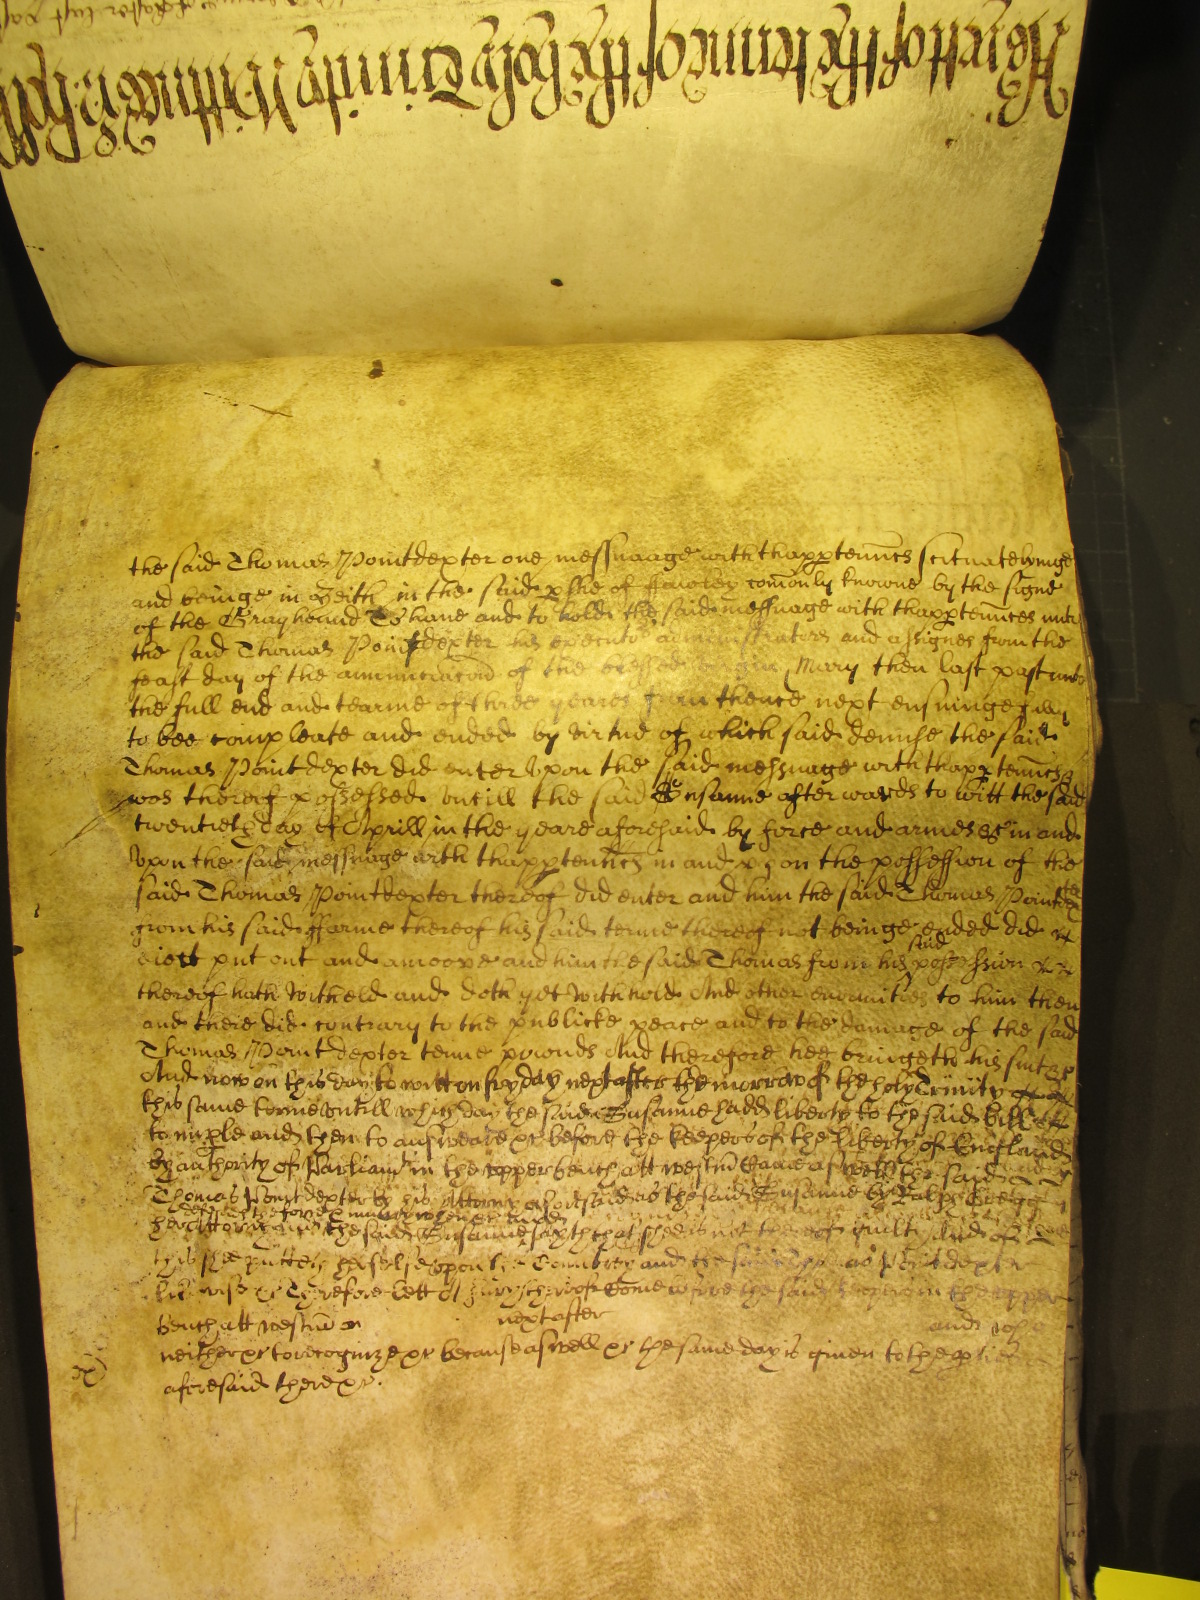 As yett of the terme of the holy Trinity Wittnes H Rolle
the said Thomas Pointdexter one messuaage with thapptenncs scituate lyinge
and beinge in in the said pshe of comonly knowne by the signe
of the Grayhound To haue and to hold the said messuage with thapptennces unto
the said Thomas Pointdexter his executors administrators and assignes from the
feast day of the annunciacon of the blessed virgin Mary then last past unto
the full end and tearme of three yeares from thence next ensuinge fully
to bee compleate and ended by virtue of which said demise the said
Thomas Pointdexter did enter upon the said messuage with thapptenncs &
was thereof possessed untill the said Susanne afterwards to witt the said
twentieth day of Aprill in the yeare aforesaid by force and armes &c in and
upon the said messuage with thapptenncs in and upon the possession of the
said Thomas Pointdexter thereof did enter and him the said Thomas Pointdexter
from his said ffarme thereof his said terme thereof not beinge ended did
eiect put out and amoove and him the said Thomas from his said possession
thereof hath witheld and doth yet withhold And other enormities to him then
and there did contrary to the publicke peace and to the damage of the said
Thomas Pointdexter tenne pounds And therefore hee bringeth his suite &c
And now on this day to witt on fryday next after the morrow of the holy Trinity
this same terme untill which day the said Susanne hadd liberty to the said bill
to imple and then to answeare &c before the keepers of the liberty of England
by authority of Parliamt in the upper bench att westm came aswell the said
Thomas Pointdexter by his Attorny aforesaid as the said Susanne by Ralph Gregge
her Attorny And the said Susanne defendeth the force & iniury when &c And sayth that shee is not thereof guilty And of
this shee putteth herselfe upon the Countrey and the said Thomas Pointdexter
likewise &c Therefore lett a Jury thereof come before the said keepers in the upper
bench att westm on next after and who
neither &c to recognize &c because aswell &c the same day is given to the pties
aforesaid there &c.